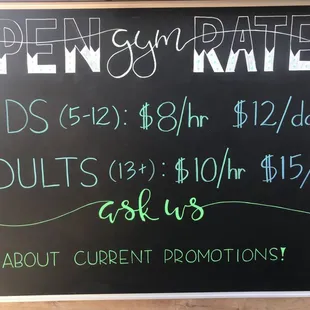 PEN gym RATE
DS (5-12): $8/hr $12/da
DULTS (13+): $10/hr $15/
ask us
ABOUT CURRENT PROMOTIONS!